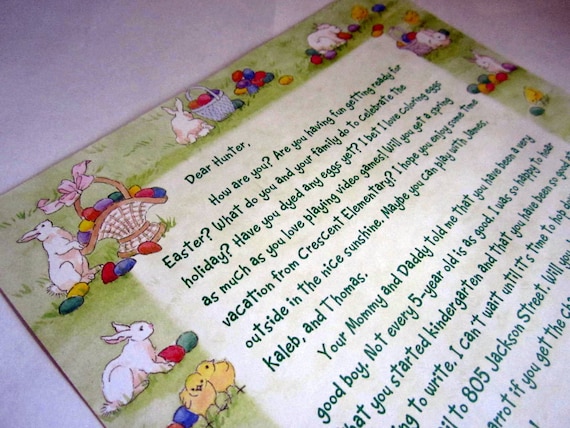 Dear Hunter,
How are you? Are you having fun getting ready for
Easter? What do you and your family do to celebrate the
holiday? Have you dyed any eggs yet? I bet I love coloring eggs
as much as you love playing video games! Will you get a spring
vacation from Crescent Elementary? I hope you enjoy some time
outside in the nice sunshine. Maybe you can play with James,
Kaleb, and Thomas.
Your Mommy and Daddy told me that you have been a very
good boy. Not every 5-year old is as good. I was so happy to hear
that you started kindergarten and that you have been so good at
ing to write. I can't wait until it's time to hop do
il to 805 Jackson Street. Will you
arrot if you get the cha